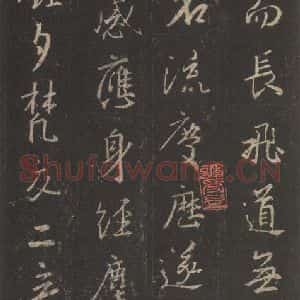 而長飛道無
名流慶歷遂
感應身經塵
夕梵交二音
Shufawang.CN